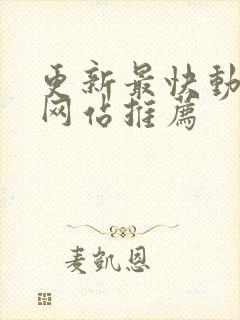 更新最快動
网佔推薦
麦凯恩